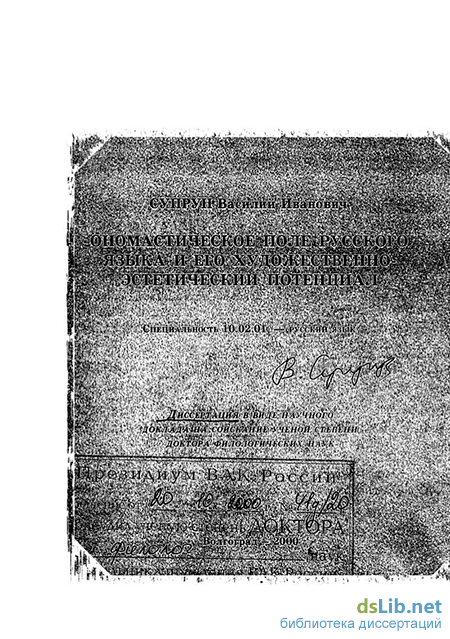 СУПРУН Василий Иванович
ОНОМАСТИЧЕСКОЕ ПОЛЕ РУССКОГО
ЯЗЫКА И ЕГО ХУДОЖЕСТВЕННО-
ЭСТЕТИЧЕСКИЙ ПОТЕНЦИАЛ
Специальность 10.02.01 — русский язык
В. Супрун
Диссертация в виде научного
доклада на соискание ученой степени
доктора филологических наук
Президиум ВАК России
20 10 2000
степень ДОКТОРА
Волгоград - 2000
филолог наук
dsLib.net
библиотека диссертаций